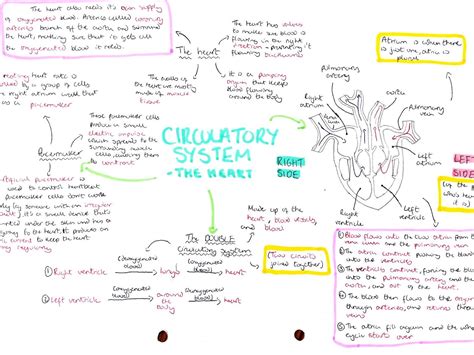 The heart also needs its own supply
of oxygenated blood. Arteries called coronary
arteries branch off the aorta and surround
the heart, making sure that it gets all
the oxygenated blood it needs.
The heart has valves
to make sure blood is
flowing in the right
direction - preventing it
flowing backwards
The heart
The walls of
the heart are mostly
made of muscle
tissue
It is a pumping
organ that keeps
blood flowing
around the body
Atrium is when there
is just one, atria is
plural
resting heart rate is
by a group of cells
right atrium that act
as a pacemaker
These pacemaker cells
produce a small
electric impulse
which spreads to the
surrounding muscle
cells, causing them
to contract
Pacemaker
artificial pacemaker is
used to control heartbeat
pacemaker cells don't work
an irregular
it's a small device that's
implanted under the skin and has a
going to the heart. It produces an
current to keep the heart
beating regularly
CIRCULATORY
SYSTEM
- THE HEART
RIGHT
SIDE
LEFT
SIDE
pulmonary
artery
aorta
vena
cava
right
atrium
pulmonary
vein
left
atrium
right
ventricle
valves
left
ventricle
Made up of the
heart, blood vessels,
and blood
The DOUBLE
circulatory system
(Two circuits
joined together)
① Right ventricle
(deoxygenated
blood)
lungs
(oxygenated
blood)
heart
② Left ventricle
(oxygenated
blood)
around
the
body
(deoxygenated
blood)
heart
① Blood flows into the two atria from the
vena cava and the pulmonary vein
② The atria contract pushing the blood
into the ventricles
③ The ventricles contract, forcing the blood
into the pulmonary artery and the aorta, and
out of the heart
④ The blood then flows to the organs
through arteries, and returns through
veins
⑤ The atria fill again and the whole
cycle starts over